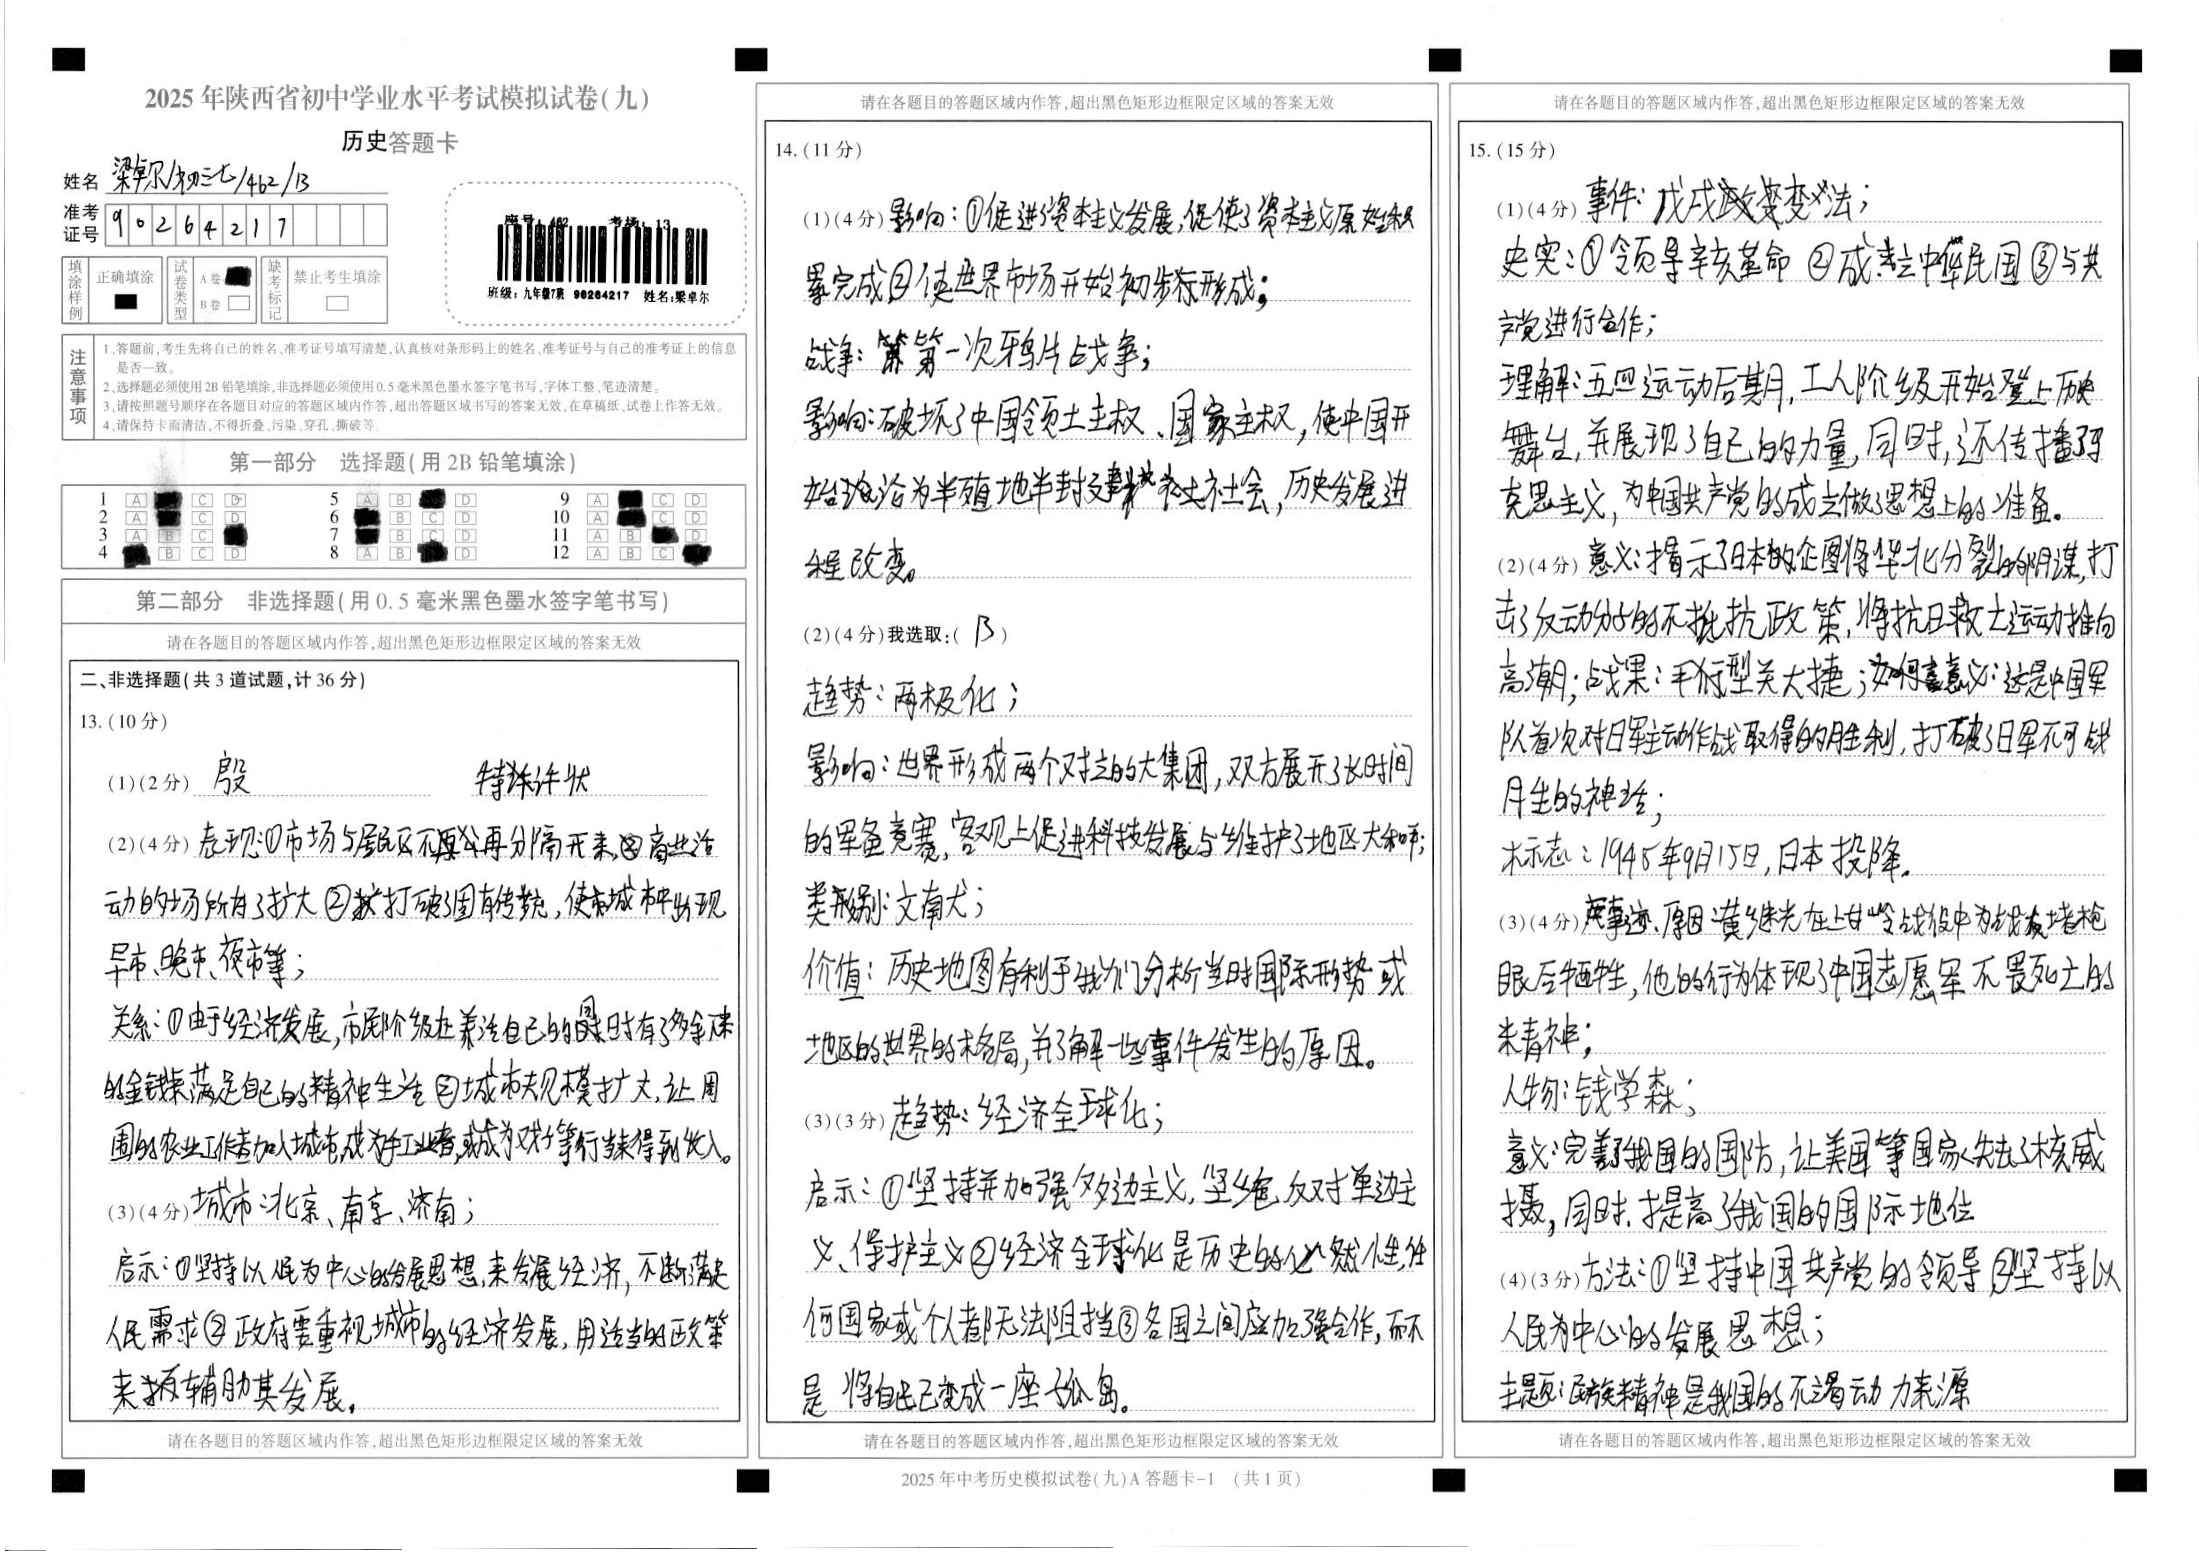 2025年陕西省初中学业水平考试模拟试卷(九)
历史答题卡
姓名 梁卓尔/初三七/462/13
准考证号 9 0 2 6 4 2 1 7
填涂样例 正确填涂 试卷类型 A卷 B卷 缺考标记 禁止考生填涂
座号:462 考场:13
班级:九年级7班 90264217 姓名:梁卓尔
注意事项
1.答题前,考生先将自己的姓名、准考证号填写清楚,认真核对条形码上的姓名、准考证号与自己的准考证上的信息
是否一致。
2.选择题必须使用2B铅笔填涂,非选择题必须使用0.5毫米黑色墨水签字笔书写,字体工整、笔迹清楚。
3.请按照题号顺序在各题目对应的答题区域内作答,超出答题区域书写的答案无效,在草稿纸、试卷上作答无效。
4.请保持卡面清洁,不得折叠、污染、穿孔、撕破等。
第一部分 选择题(用2B铅笔填涂)
1 A C D 5 A B D 9 A C D
2 A C D 6 B C D 10 A C D
3 A B C 7 B C D 11 A B D
4 B C D 8 A B D 12 A B C
第二部分 非选择题(用0.5毫米黑色墨水签字笔书写)
请在各题目的答题区域内作答,超出黑色矩形边框限定区域的答案无效
二、非选择题(共3道试题,计36分)
13.(10分)
(1)(2分) 殷 特许状
(2)(4分) 表现:①市场与居民区不再分隔开来,商业活
动的场所有了扩大②打破了固有传统,使城市中出现
早市、晚市、夜市等;
关系:①由于经济发展,市民阶级在养活自己的同时有了多余
的金钱来满足自己的精神生活②城市规模扩大,让周
围的农业工作者加入城市,成为手工业者,或成为 等行当来得到收入。
(3)(4分) 城市:北京、南京、济南;
启示:①坚持以人民为中心的发展思想,来发展经济,不断满足
人民需求②政府要重视城市的经济发展,用适当的政策
来辅助其发展。
请在各题目的答题区域内作答,超出黑色矩形边框限定区域的答案无效
请在各题目的答题区域内作答,超出黑色矩形边框限定区域的答案无效
14.(11分)
(1)(4分) 影响:①促进了资本主义发展,促使了资本主义原始积
累完成②使世界市场开始初步形成;
战争:第一次鸦片战争;
影响:破坏了中国领土主权、国家主权,使中国开
始沦为半殖地半封建社会,历史发展进
程改变。
(2)(4分)我选取:( B )
趋势:两极化;
影响:世界形成两个对立的大集团,双方展开了长时间
的军备竞赛,客观上促进科技发展与维护了地区大和平;
类别:文献;
价值:历史地图有利于我们分析当时国际形势或
地区的世界的格局,并了解一些事件发生的原因。
(3)(3分) 趋势:经济全球化;
启示:①坚持并加强多边主义,坚绝反对单边主
义、保护主义②经济全球化是历史的必然性,任
何国家或个人都无法阻挡③各国之间应加强合作,而不
是将自己变成一座孤岛。
请在各题目的答题区域内作答,超出黑色矩形边框限定区域的答案无效
2025年中考历史模拟试卷(九)A答题卡-1 (共1页)
请在各题目的答题区域内作答,超出黑色矩形边框限定区域的答案无效
15.(15分)
(1)(4分) 事件:戊戌变法;
史实:①领导辛亥革命②成立中华民国③与共
产党进行合作;
理解:五四运动后期,工人阶级开始登上历史
舞台,并展现了自己的力量,同时,还传播了马
克思主义,为中国共产党的成立做了思想上的准备。
(2)(4分) 意义:揭示了日本的企图将华北分裂的阴谋,打
击了反动分子的不抵抗政策,将抗日救亡运动推向
高潮;战果:平型关大捷;意义:这是中国军
队首次对日军主动作战取得的胜利,打破了日军不可战
胜的神话;
标志:1945年9月15日,日本投降。
(3)(4分) 事迹、原因:黄继光在上甘岭战役中为战友堵枪
眼后牺牲,他的行为体现了中国志愿军不畏死亡的
精神;
人物:钱学森;
意义:完善了我国的国防,让美国等国家失去了核威
摄,同时,提高了我国的国际地位
(4)(3分) 方法:①坚持中国共产党的领导②坚持以
人民为中心的发展思想;
主题:民族精神是我国的不竭动力来源
请在各题目的答题区域内作答,超出黑色矩形边框限定区域的答案无效